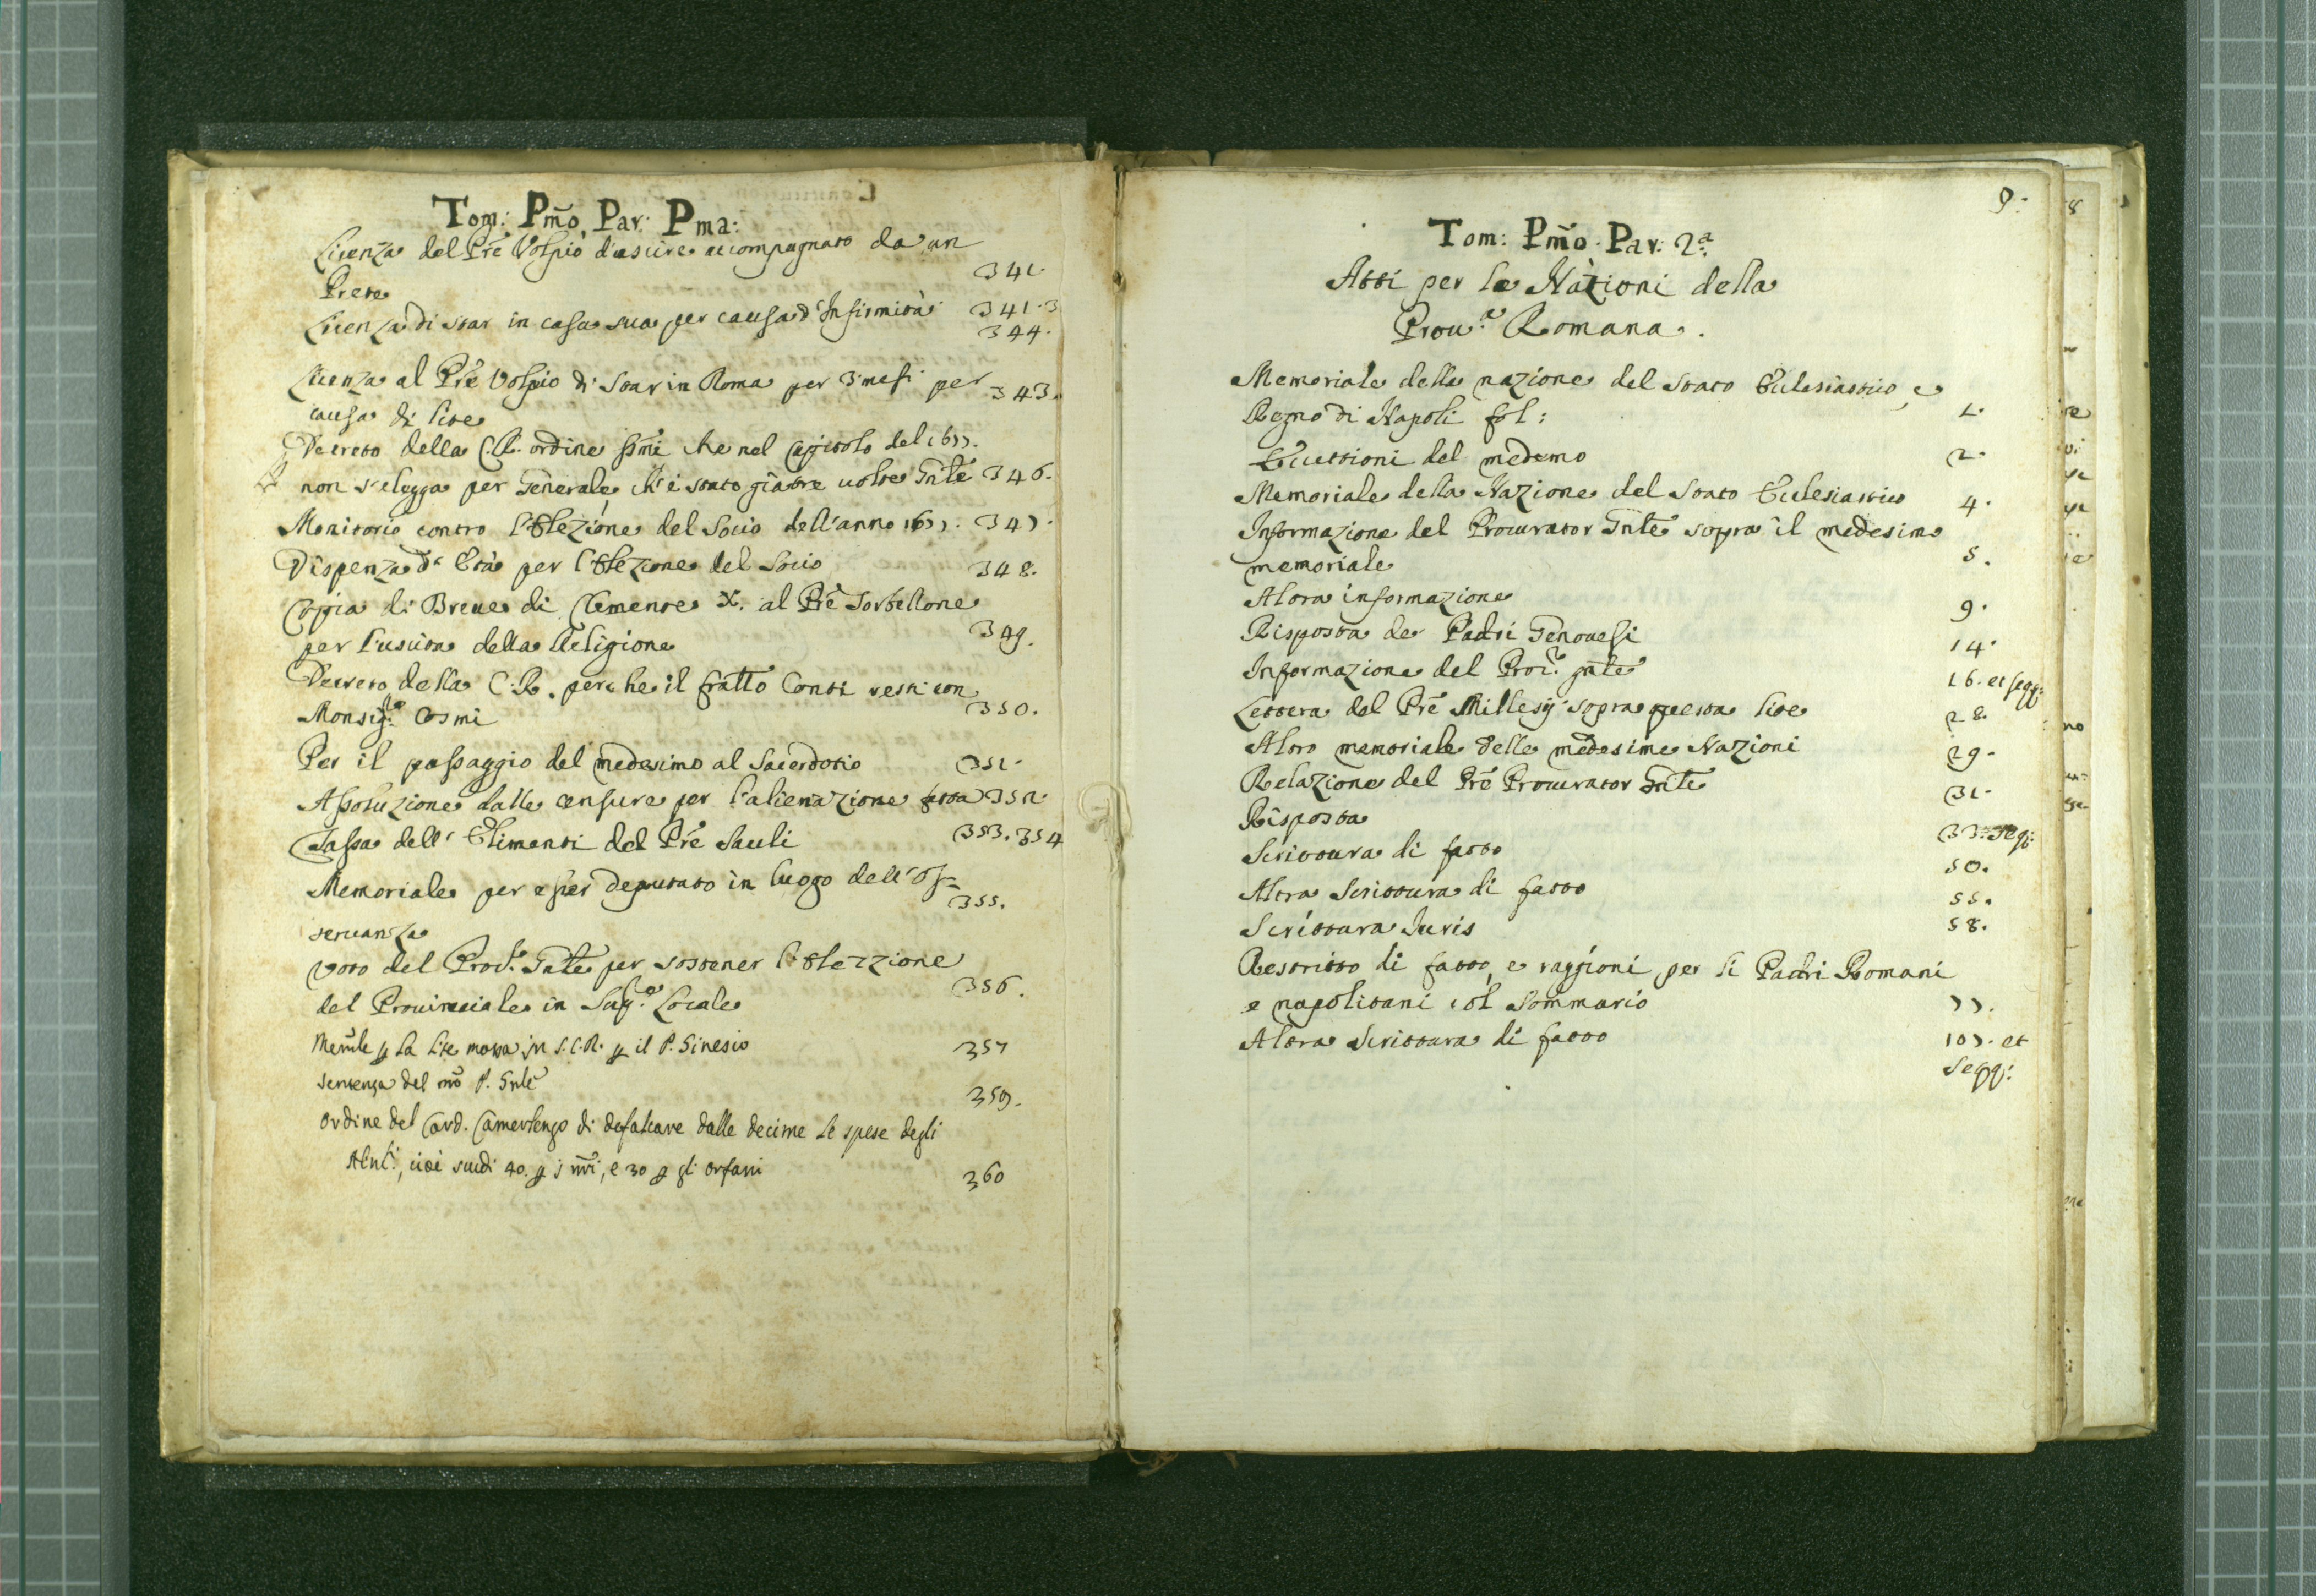 Tom: Pm̃o, Par: Pma:
Licenza del Prẽ Volpio d'uscire accompagnato da un
Prete 341.
Licenza di star in casa sua per causa d'Infirmità 341.3
344.
Licenza al Prẽ Volpio di star in Roma per 3 mesi per 343.
causa di lite
Decreto della C.R. ordine che nel Capitolo del 1677.
non s'elegga per Generale, ch'è stato già tre volte Gñle 346.
Monitorio contro l'Elezione del Socio dell'anno 1677. 347.
Dispenza d'Età per l'Elezione del Socio 348.
Copia di Breve di Clemente X. al Prẽ Sorbellone
per l'uscita della Religione 349.
Decreto della C.R. perche il fratto Conti resti con
Monsig.re Cosmi 350.
Per il passaggio del medesimo al Sacerdotio 351.
Assoluzione dalle censure per l'alienazione fatta 352.
Tassa dell'Elimenti del Prẽ Sauli 353. 354
Memoriale per esser deputato in luogo dell'Os=
servanza 355.
Voto del Proc.r Gñle per sostener l'Elezzione
del Provinciale in Sup.re Locale 356.
Mem̃le ꝑ la lite mossa in S.C.R. ꝑ il P. Sinesio 357
Sentenza del P. Gñle 359.
Ordine del Card. Camerlengo di defalcare dalle decime le spese degli
cioè scudi 40. ꝑ i , e 30 ꝑ gli orfani 360
9.
Tom: Pm̃o. Par: 2.a
Atti per le Nazioni della
Prou.a Romana.
Memoriale delle nazione del Stato Eclesiastico, e
Regno di Napoli fol: 1.
Eccettioni del medemo 2.
Memoriale della Nazione del Stato Eclesiastico 4.
Informazione del Procurator Gñle sopra il medesimo
memoriale 5.
Altra informazione 9.
Risposta de Padri Genouesi 14.
Informazione del Proc.r gñle 16. et segg:
Lettera del Prẽ Millesij sopra questa lite 28.
Altro memoriale delle medesime Nazioni 29.
Relazione del Prẽ Procurator Gñle 31.
Risposta
Scrittura di fatto 33. segg:
50.
Altra Scrittura di fatto 55.
Scrittura Iuris 58.
Restritto di fatto, e raggioni per li Padri Romani
e napolitani col Sommario 77.
Altra Scrittura di fatto 107. et
segg: